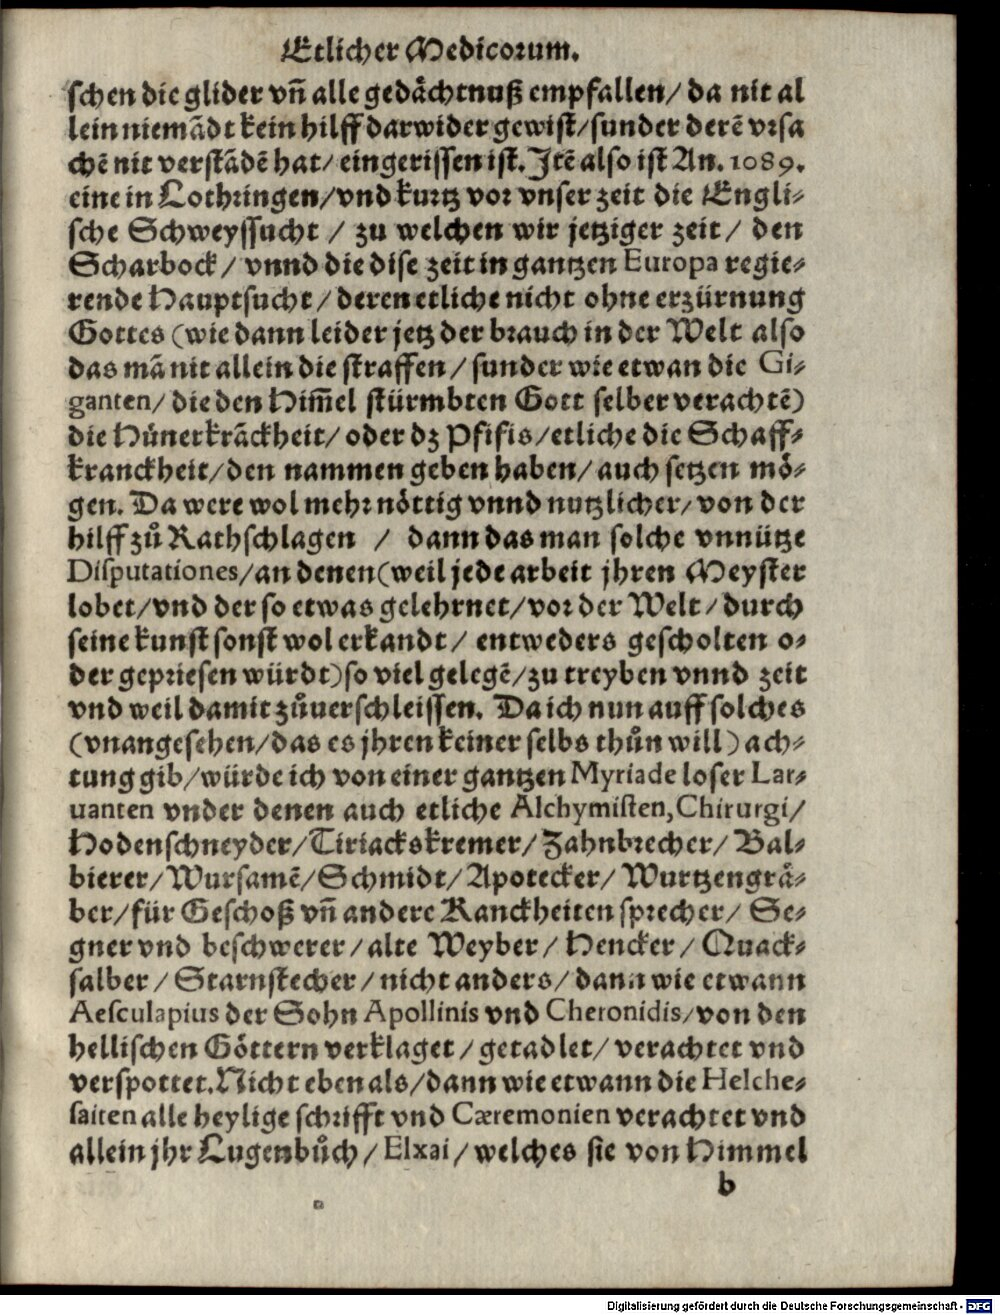 Etlicher Medicorum.
schen die glider vñ alle gedächtnuß empfallen/ da nit al
lein niemãdt kein hilff darwider gewist/sunder derẽ vrsa
chẽ nit verstãdẽ hat/ eingerissen ist. Jtẽ also ist An. 1089.
eine in Lothringen/vnd kurtz vor vnser zeit die Engli-
sche Schweyssucht / zu welchen wir jetziger zeit / den
Scharbock / vnnd die dise zeit in gantzen Europa regie-
rende Hauptsucht / deren etliche nicht ohne erzürnung
Gottes (wie dann leider jetz der brauch in der Welt also
das mã nit allein die straffen / sunder wie etwan die Gi-
ganten/ die den Him̃el stürmbten Gott selber verachtẽ)
die Hůnerkrãckheit/ oder dz Pfifis/etliche die Schaff-
kranckheit/den nammen geben haben/ auch setzen mö-
gen. Da were wol mehr nöttig vnnd nutzlicher/ von der
hilff zů Rathschlagen / dann das man solche vnnütze
Disputationes/an denen (weil jede arbeit jhren Meyster
lobet/vnd der so etwas gelehrnet/vor der Welt / durch
seine kunst sonst wol erkandt / entweders gescholten o-
der gepriesen würdt) so viel gelegẽ/zu treyben vnnd zeit
vnd weil damit zůuerschleissen. Da ich nun auff solches
(vnangesehen/das es jhren keiner selbs thůn will) ach-
tung gib/würde ich von einer gantzen Myriade loser Lar-
uanten vnder denen auch etliche Alchymisten, Chirurgi/
Hodenschneyder/Tiriackskremer/ Zahnbrecher/ Bal-
bierer/ Wursamẽ/ Schmidt/ Apotecker/ Wurtzengrä-
ber/für Geschoß vñ andere Ranckheiten sprecher/ Se-
gner vnd beschwerer / alte Weyber / Hencker / Quack-
salber / Starnstecher / nicht anders/ dann wie etwann
Aesculapius der Sohn Apollinis vnd Cheronidis/von den
hellischen Göttern verklaget / getadlet/ verachtet vnd
verspottet. Nicht eben als/dann wie etwann die Helche-
saiten alle heylige schrifft vnd Cæremonien verachtet vnd
allein jhr Lugenbůch / Elxai / welches sie von Himmel
b
Digitalisierung gefördert durch die Deutsche Forschungsgemeinschaft - DFG